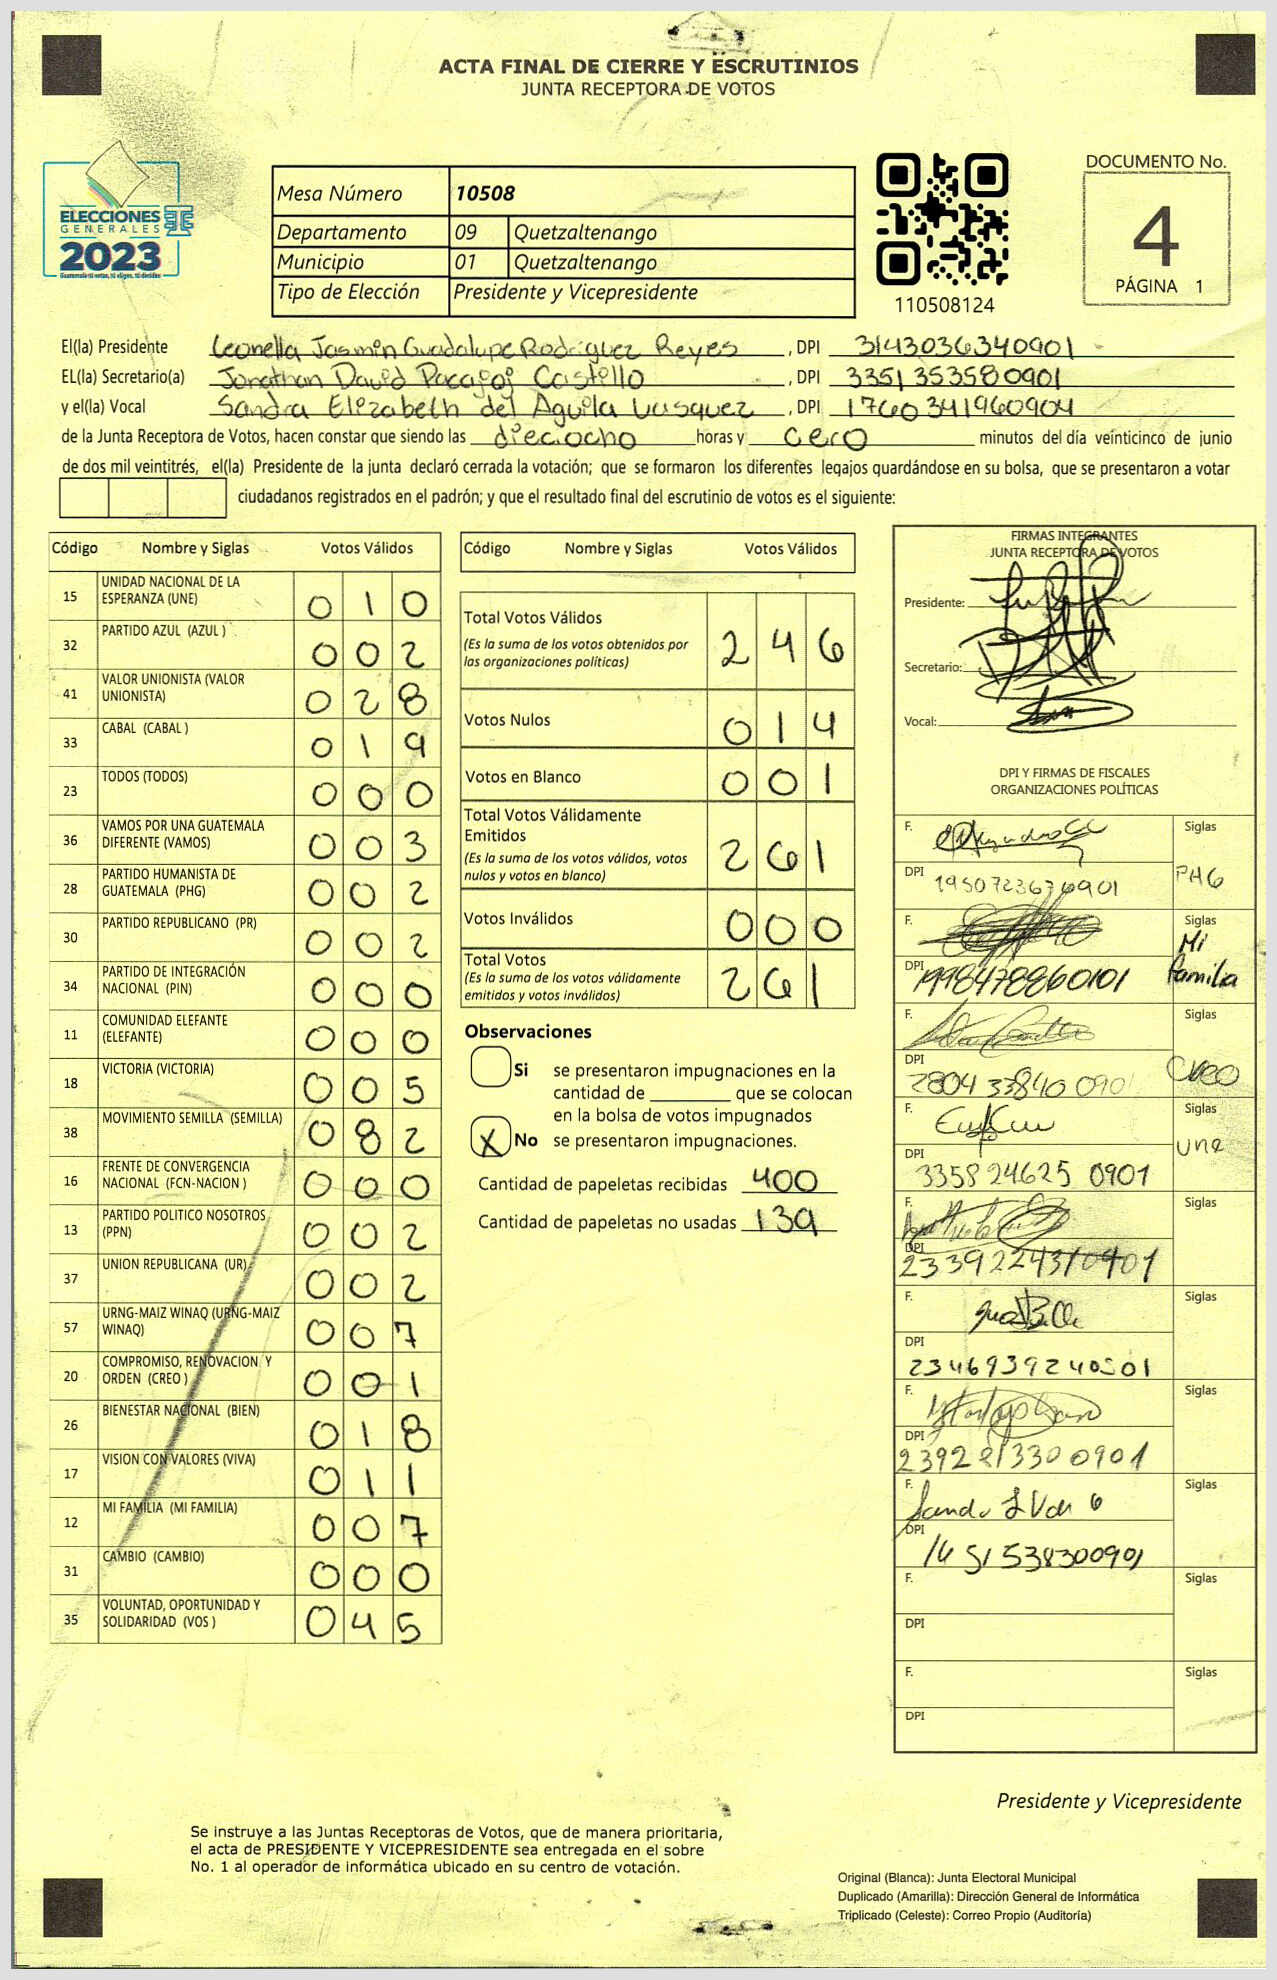 ACTA FINAL DE CIERRE Y ESCRUTINIOS
JUNTA RECEPTORA DE VOTOS
ELECCIONES
GENERALES
2023
Mesa Número 10508
Departamento 09 Quetzaltenango
Municipio 01 Quetzaltenango
Tipo de Elección Presidente y Vicepresidente
110508124
DOCUMENTO No.
4
PÁGINA 1
El(la) Presidente Leonella Jasmin Guadalupe Rodriguez Reyes , DPI 3143036340901
EL(la) Secretario(a) Jonathan David Pacajoj Castello , DPI 3351353580901
y el(la) Vocal Sandra Elizabeth del Aguila Vasquez , DPI 1760341960904
de la Junta Receptora de Votos, hacen constar que siendo las dieciocho horas y cero minutos del día veinticinco de junio
de dos mil veintitrés, el(la) Presidente de la junta declaró cerrada la votación; que se formaron los diferentes legajos guardándose en su bolsa, que se presentaron a votar
ciudadanos registrados en el padrón; y que el resultado final del escrutinio de votos es el siguiente:
Código Nombre y Siglas Votos Válidos
15 UNIDAD NACIONAL DE LA ESPERANZA (UNE) 0 1 0
32 PARTIDO AZUL (AZUL ) 0 0 2
41 VALOR UNIONISTA (VALOR UNIONISTA) 0 2 8
33 CABAL (CABAL ) 0 1 9
23 TODOS (TODOS) 0 0 0
36 VAMOS POR UNA GUATEMALA DIFERENTE (VAMOS) 0 0 3
28 PARTIDO HUMANISTA DE GUATEMALA (PHG) 0 0 2
30 PARTIDO REPUBLICANO (PR) 0 0 2
34 PARTIDO DE INTEGRACIÓN NACIONAL (PIN) 0 0 0
11 COMUNIDAD ELEFANTE (ELEFANTE) 0 0 0
18 VICTORIA (VICTORIA) 0 0 5
38 MOVIMIENTO SEMILLA (SEMILLA) 0 8 2
16 FRENTE DE CONVERGENCIA NACIONAL (FCN-NACION ) 0 0 0
13 PARTIDO POLITICO NOSOTROS (PPN) 0 0 2
37 UNION REPUBLICANA (UR) 0 0 2
57 URNG-MAIZ WINAQ (URNG-MAIZ WINAQ) 0 0 7
20 COMPROMISO, RENOVACION Y ORDEN (CREO ) 0 0 1
26 BIENESTAR NACIONAL (BIEN) 0 1 8
17 VISION CON VALORES (VIVA) 0 1 1
12 MI FAMILIA (MI FAMILIA) 0 0 7
31 CAMBIO (CAMBIO) 0 0 0
35 VOLUNTAD, OPORTUNIDAD Y SOLIDARIDAD (VOS ) 0 4 5
Código Nombre y Siglas Votos Válidos
Total Votos Válidos 2 4 6
(Es la suma de los votos obtenidos por
las organizaciones políticas)
Votos Nulos 0 1 4
Votos en Blanco 0 0 1
Total Votos Válidamente
Emitidos 2 6 1
(Es la suma de los votos válidos, votos
nulos y votos en blanco)
Votos Inválidos 0 0 0
Total Votos 2 6 1
(Es la suma de los votos válidamente
emitidos y votos inválidos)
Observaciones
Si se presentaron impugnaciones en la
cantidad de ________ que se colocan
en la bolsa de votos impugnados
X No se presentaron impugnaciones.
Cantidad de papeletas recibidas 400
Cantidad de papeletas no usadas 139
FIRMAS INTEGRANTES
JUNTA RECEPTORA DE VOTOS
Presidente:
Secretario:
Vocal:
DPI Y FIRMAS DE FISCALES
ORGANIZACIONES POLÍTICAS
F. Siglas
DPI 1950723676901 PHG
F. Siglas
DPI 1998478860101 Mi familia
F. Siglas
DPI 2804 33840 090 Creo
F. Siglas
DPI 3358 24625 0901 une
F. Siglas
DPI 2339224310901
F. Siglas
DPI
F. Siglas
DPI
F. Siglas
DPI
F. Siglas
DPI
F. Siglas
DPI
Presidente y Vicepresidente
Se instruye a las Juntas Receptoras de Votos, que de manera prioritaria,
el acta de PRESIDENTE Y VICEPRESIDENTE sea entregada en el sobre
No. 1 al operador de informática ubicado en su centro de votación.
Original (Blanca): Junta Electoral Municipal
Duplicado (Amarilla): Dirección General de Informática
Triplicado (Celeste): Correo Propio (Auditoría)